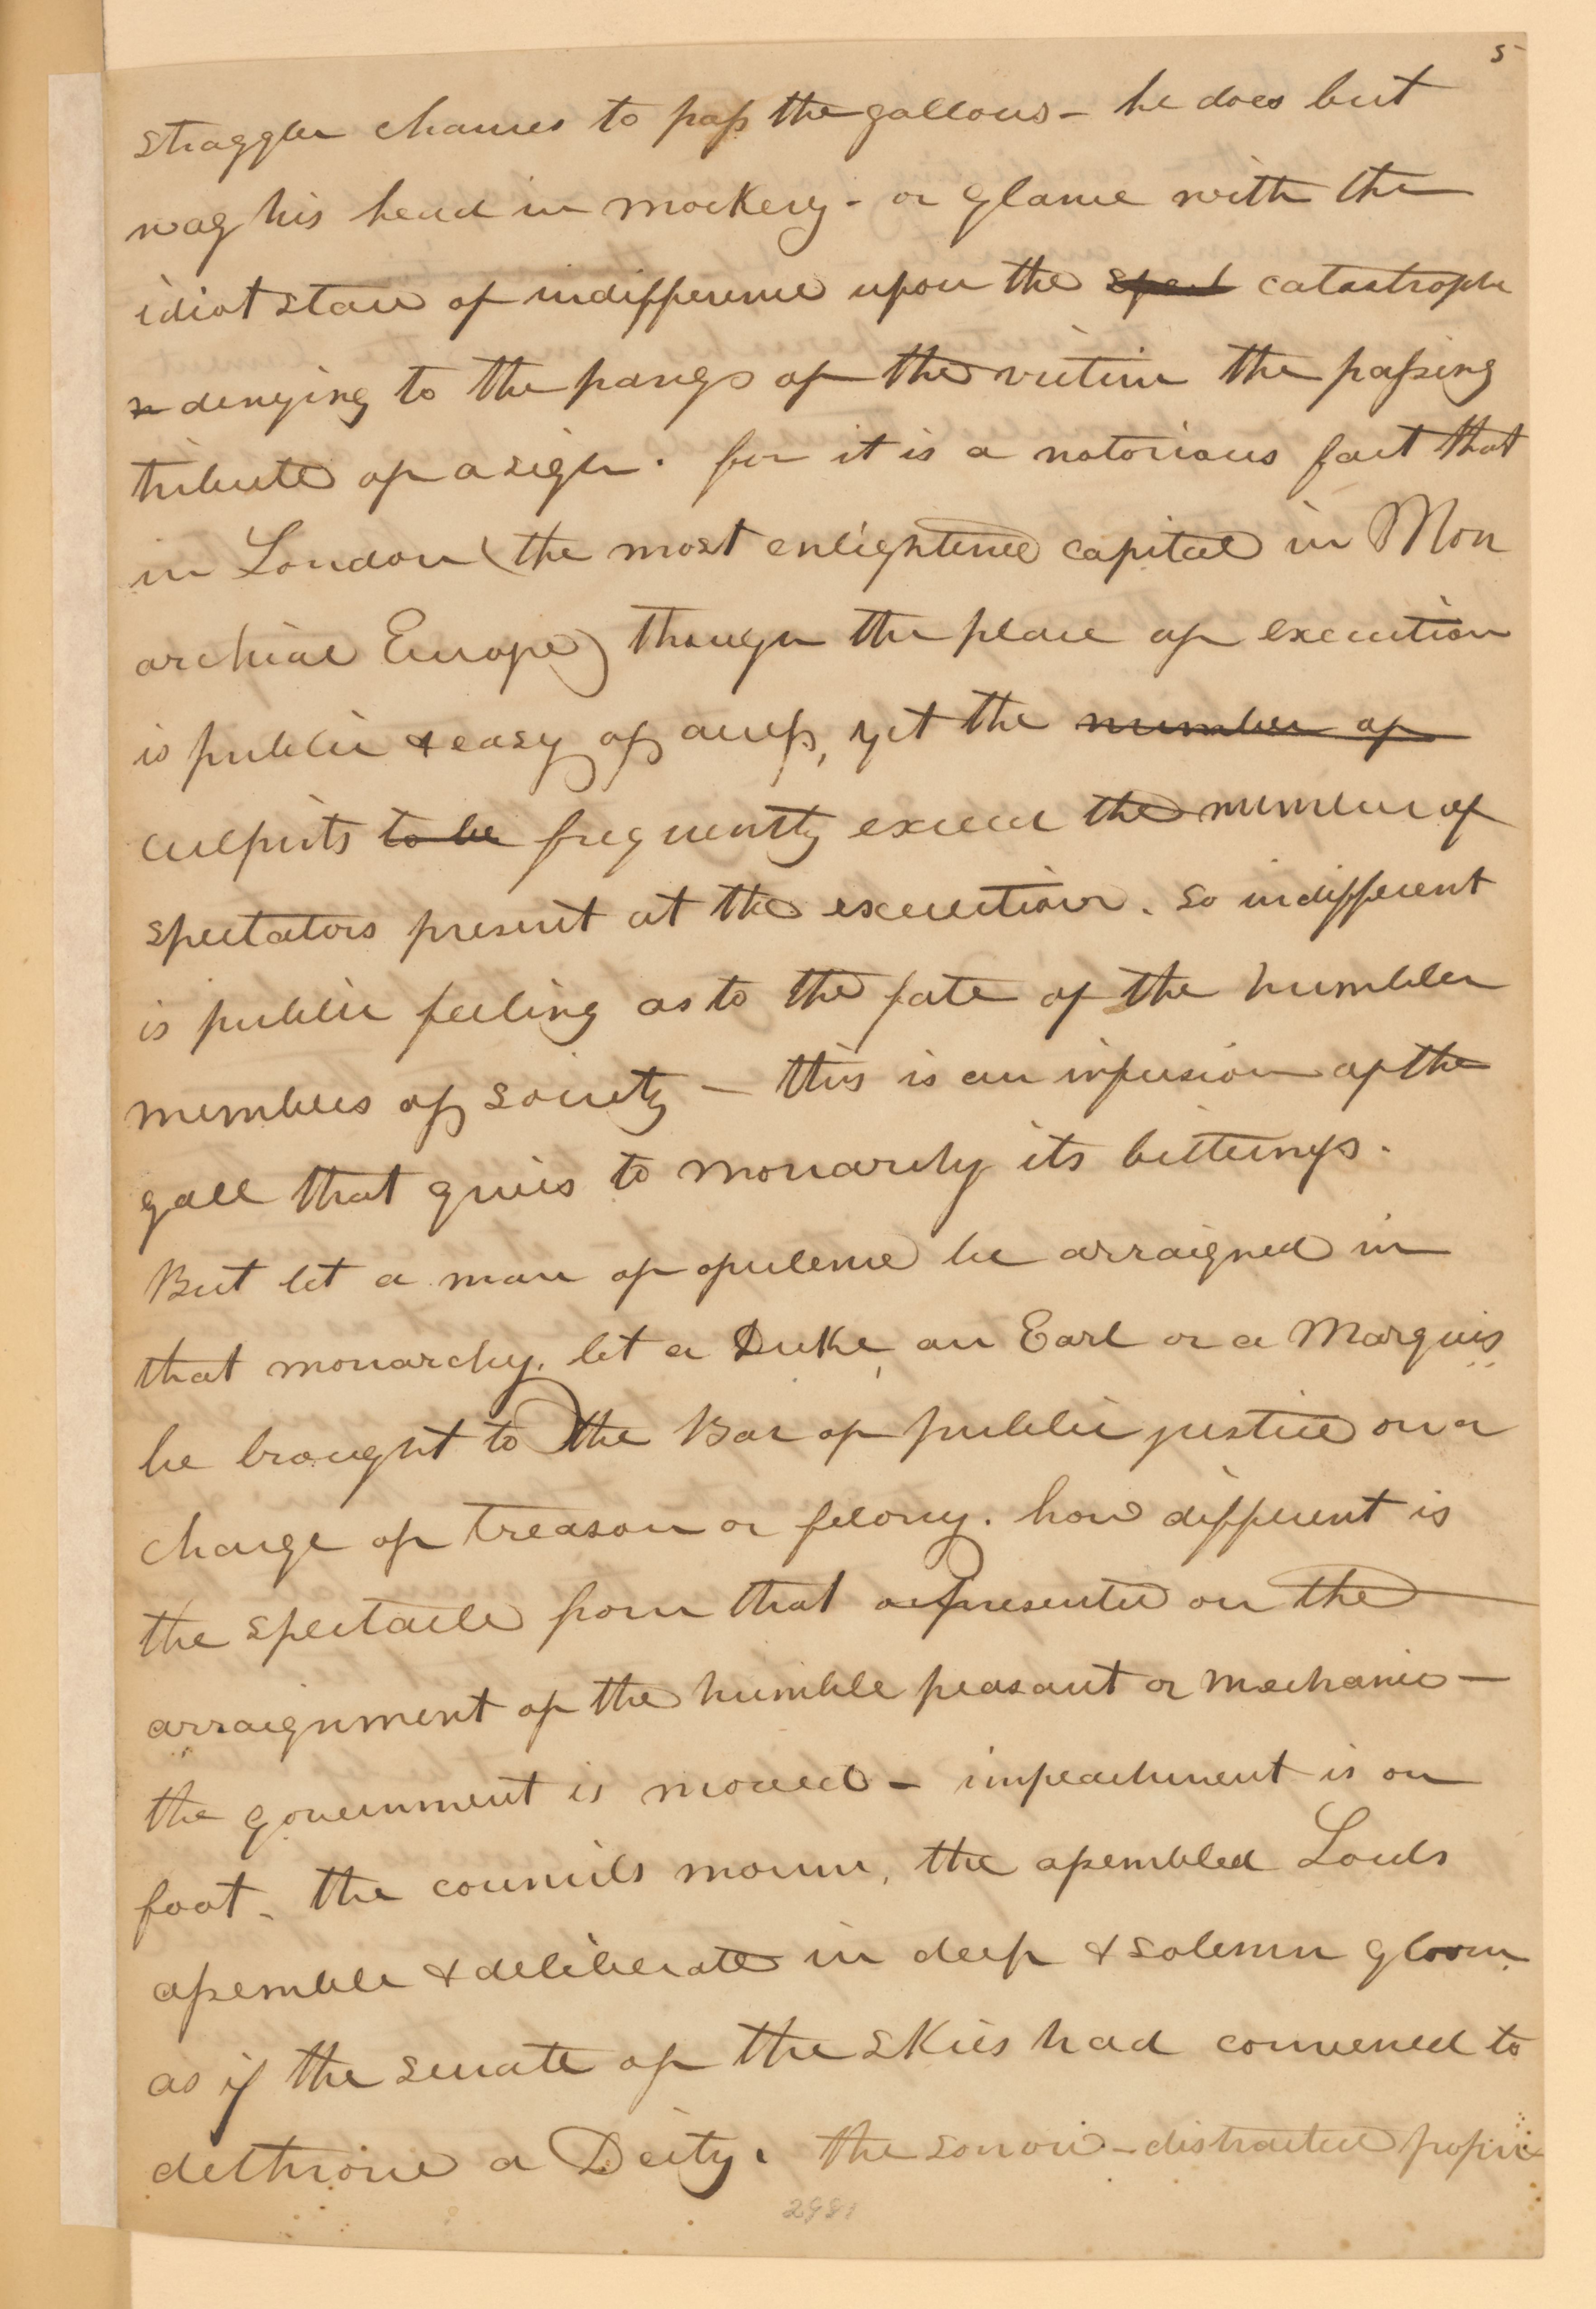 5
straggler chances to pass the gallows - he does but
wag his head in mockery - or glance with the
idiot stare of indifference upon the catastrophe
denying to the pangs of the victim the passing
tribute of a sigh. for it is a notorious fact that
in London (the most enlightened capital in Mon
archial Europe) though the place of execution
is public & easy of access, yet the number of
culprits to be frequently exceed the number of
spectators present at the execution. So indifferent
is public feeling as to the fate of the humbler
members of society - this is an infusion of the
gall that gives to monarchy its bitterness.
But let a man of opulence be arraigned in
that monarchy, let a Duke, an Earl or a Marquis
be brought to the Bar of public justice on a
charge of treason or felony. how different is
the spectacle from that presented on the
arraignment of the humble peasant or mechanic -
the government is moved - impeachment is on
foot - the councils mourn, the assembled Lords
assemble & deliberate in deep & solemn gloom
as if the senate of the skies had convened to
dethrone a Deity. the sorrow-distracted
2981